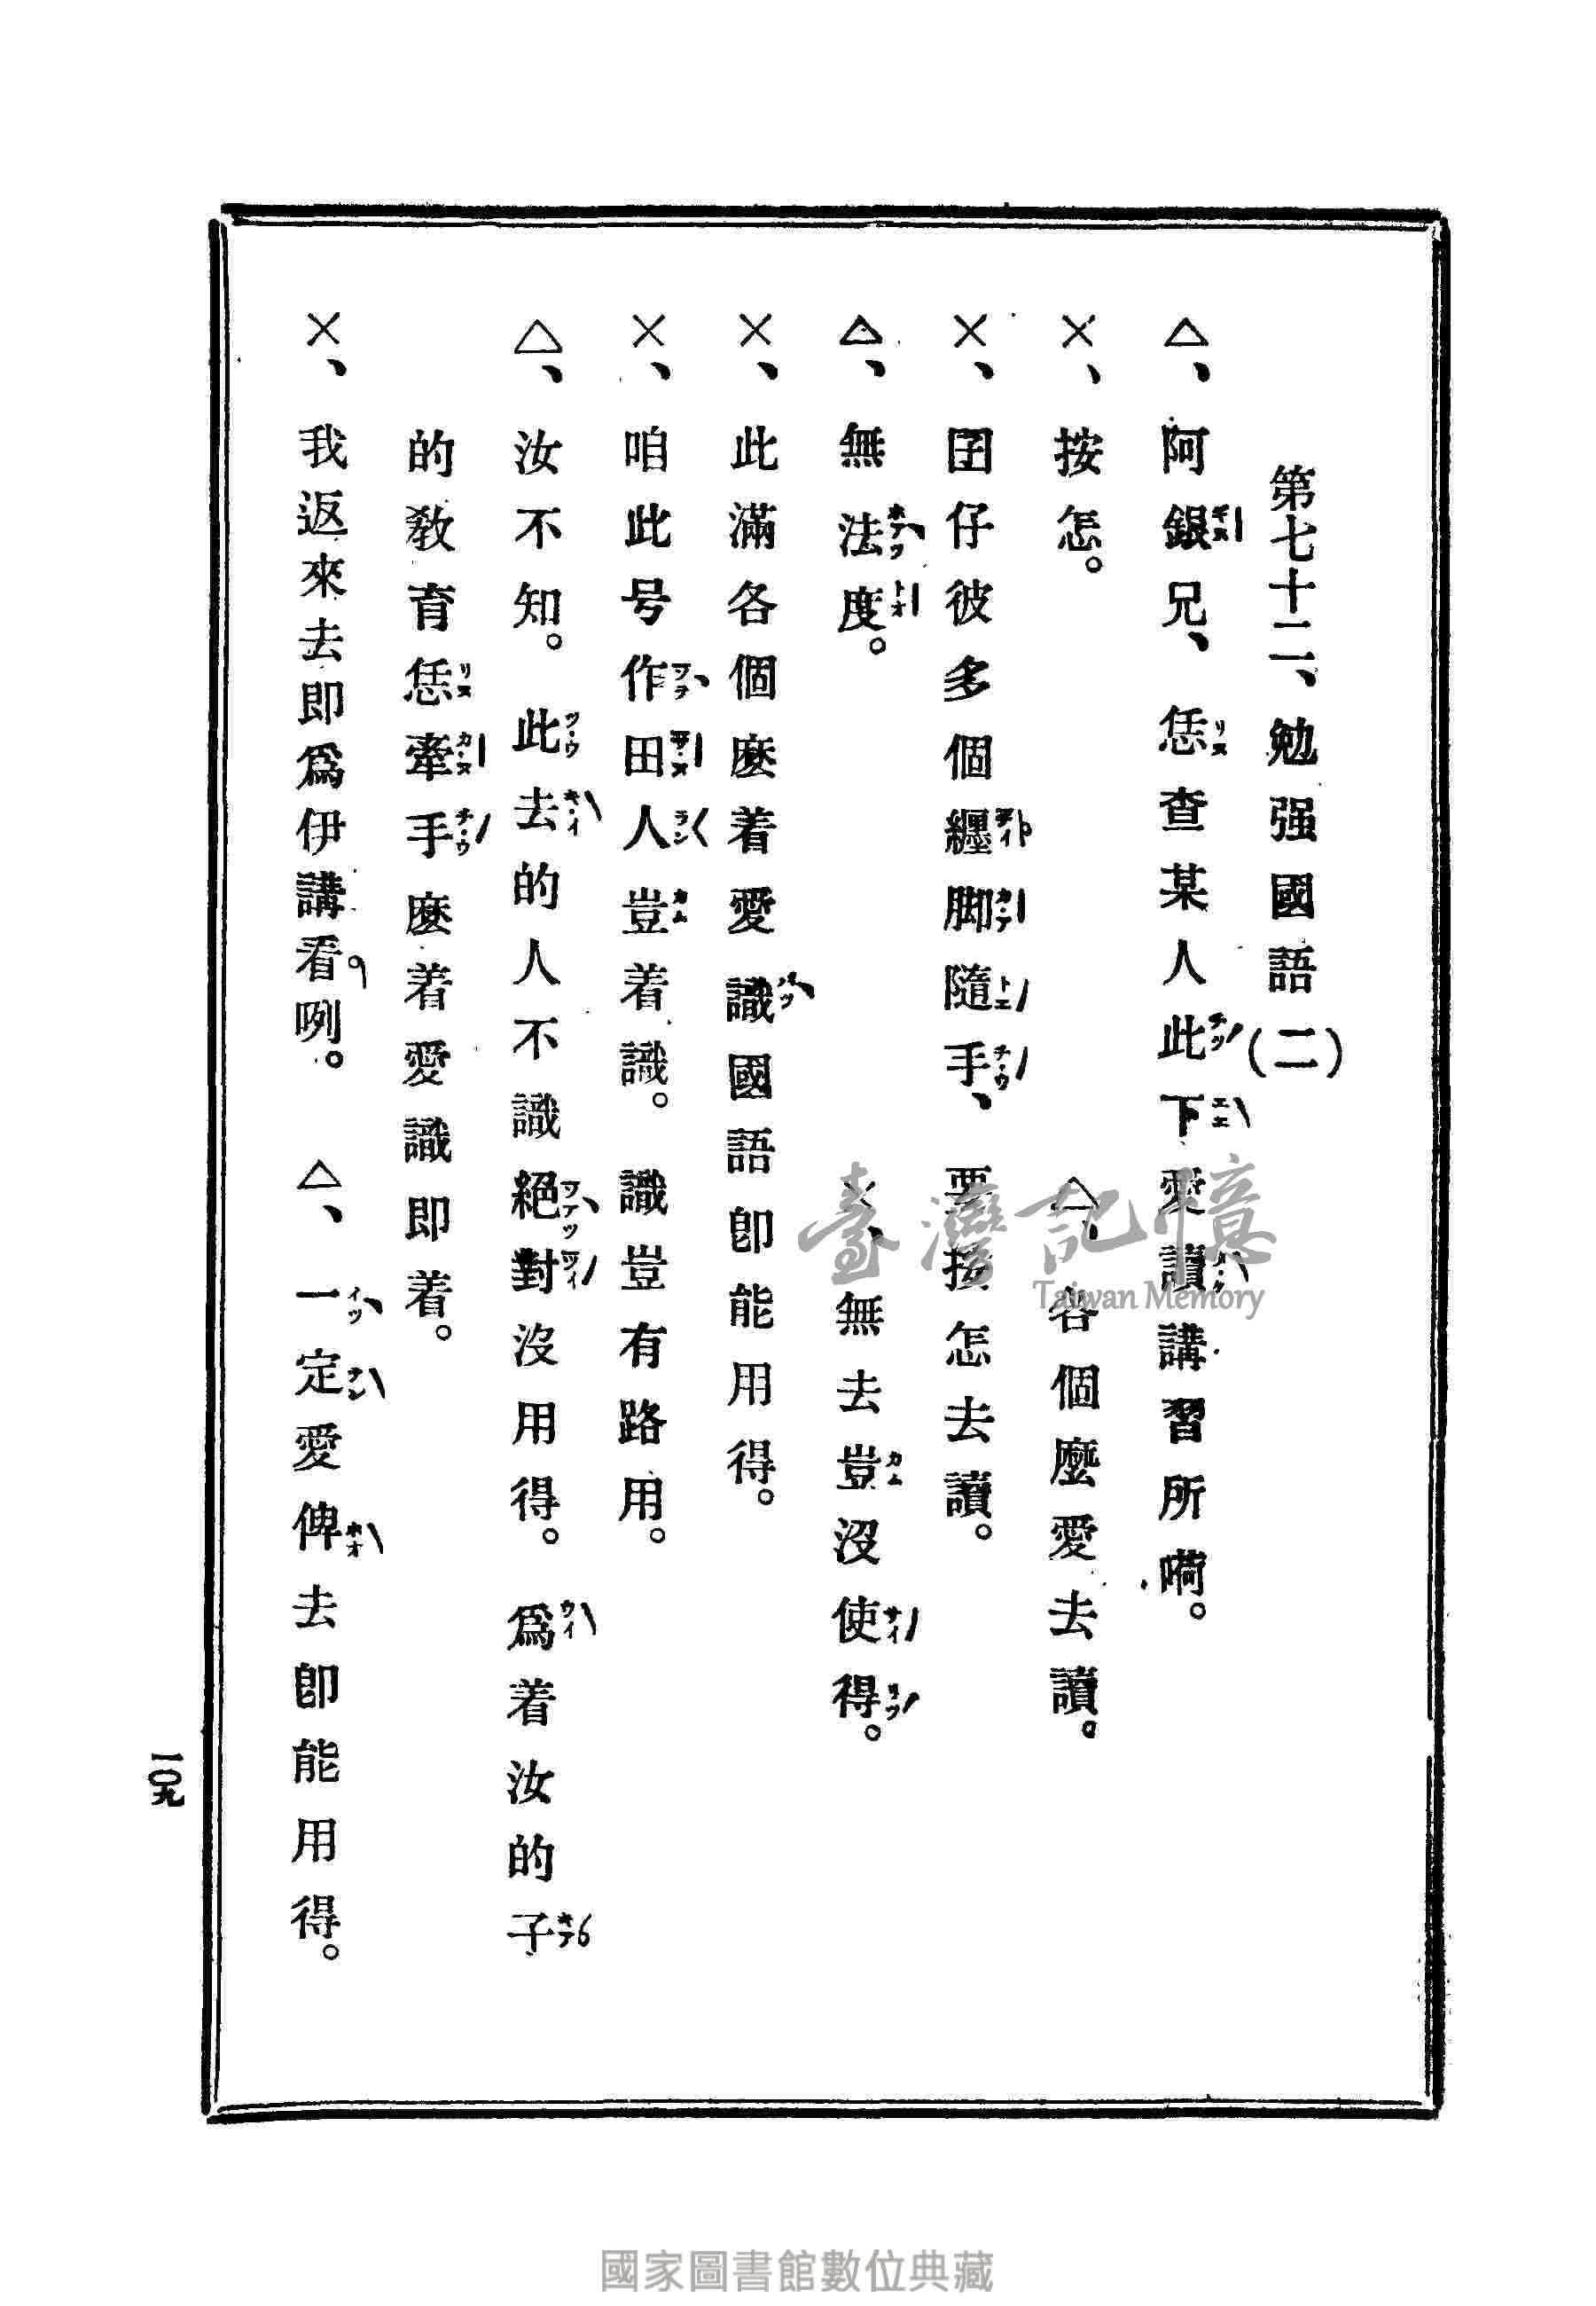 第七十二、勉强國語(二)
△、阿銀兄、恁查某人此下愛讀講習所嗬。
×、按怎。
△、各個麼愛去讀。
×、囝仔彼多個纏脚隨手、要按怎去讀。
△、無法度。
×、無去豈沒使得。
×、此滿各個麼着愛識國語卽能用得。
×、咱此号作田人豈着識。識豈有路用。
△、汝不知。此去的人不識絕對沒用得。爲着汝的子
的敎育恁牽手麼着愛識即着。
×、我返來去即爲伊講看咧。
△、一定愛俾去卽能用得。
一〇九
臺灣記憶
Taiwan Memory
國家圖書館數位典藏